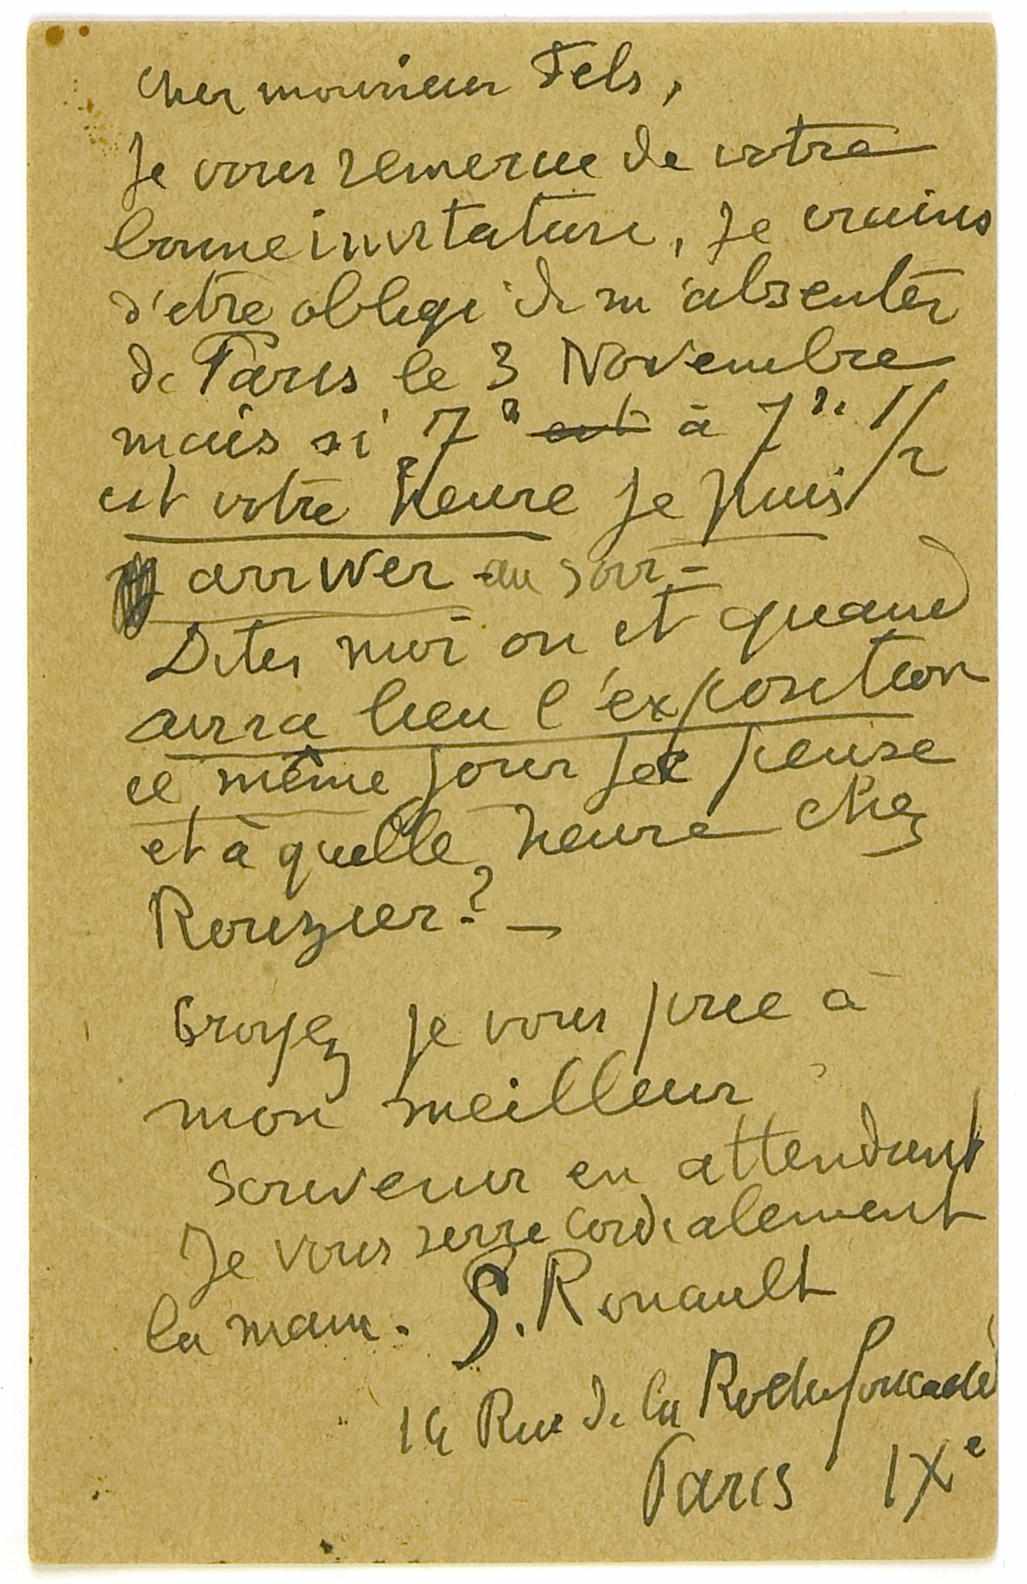 Cher monsieur Fels,
Je vous remercie de votre
bonne invitation, Je crains
d'etre obligé de m'absenter
de Paris le 3 Novembre
mais si 7h est à 7h 1/2
est votre heure Je puis
y arriver au soir -
Dites moi ou et quand
aura lieu l'exposition
ce même jour je pense
et à quelle heure chez
Rouzier? -
Croyez je vous prie à
mon meilleur
souvenir en attendant
Je vous serre cordialement
la main. G. Rouault
14 Rue de la Rochefoucauld
Paris IXe